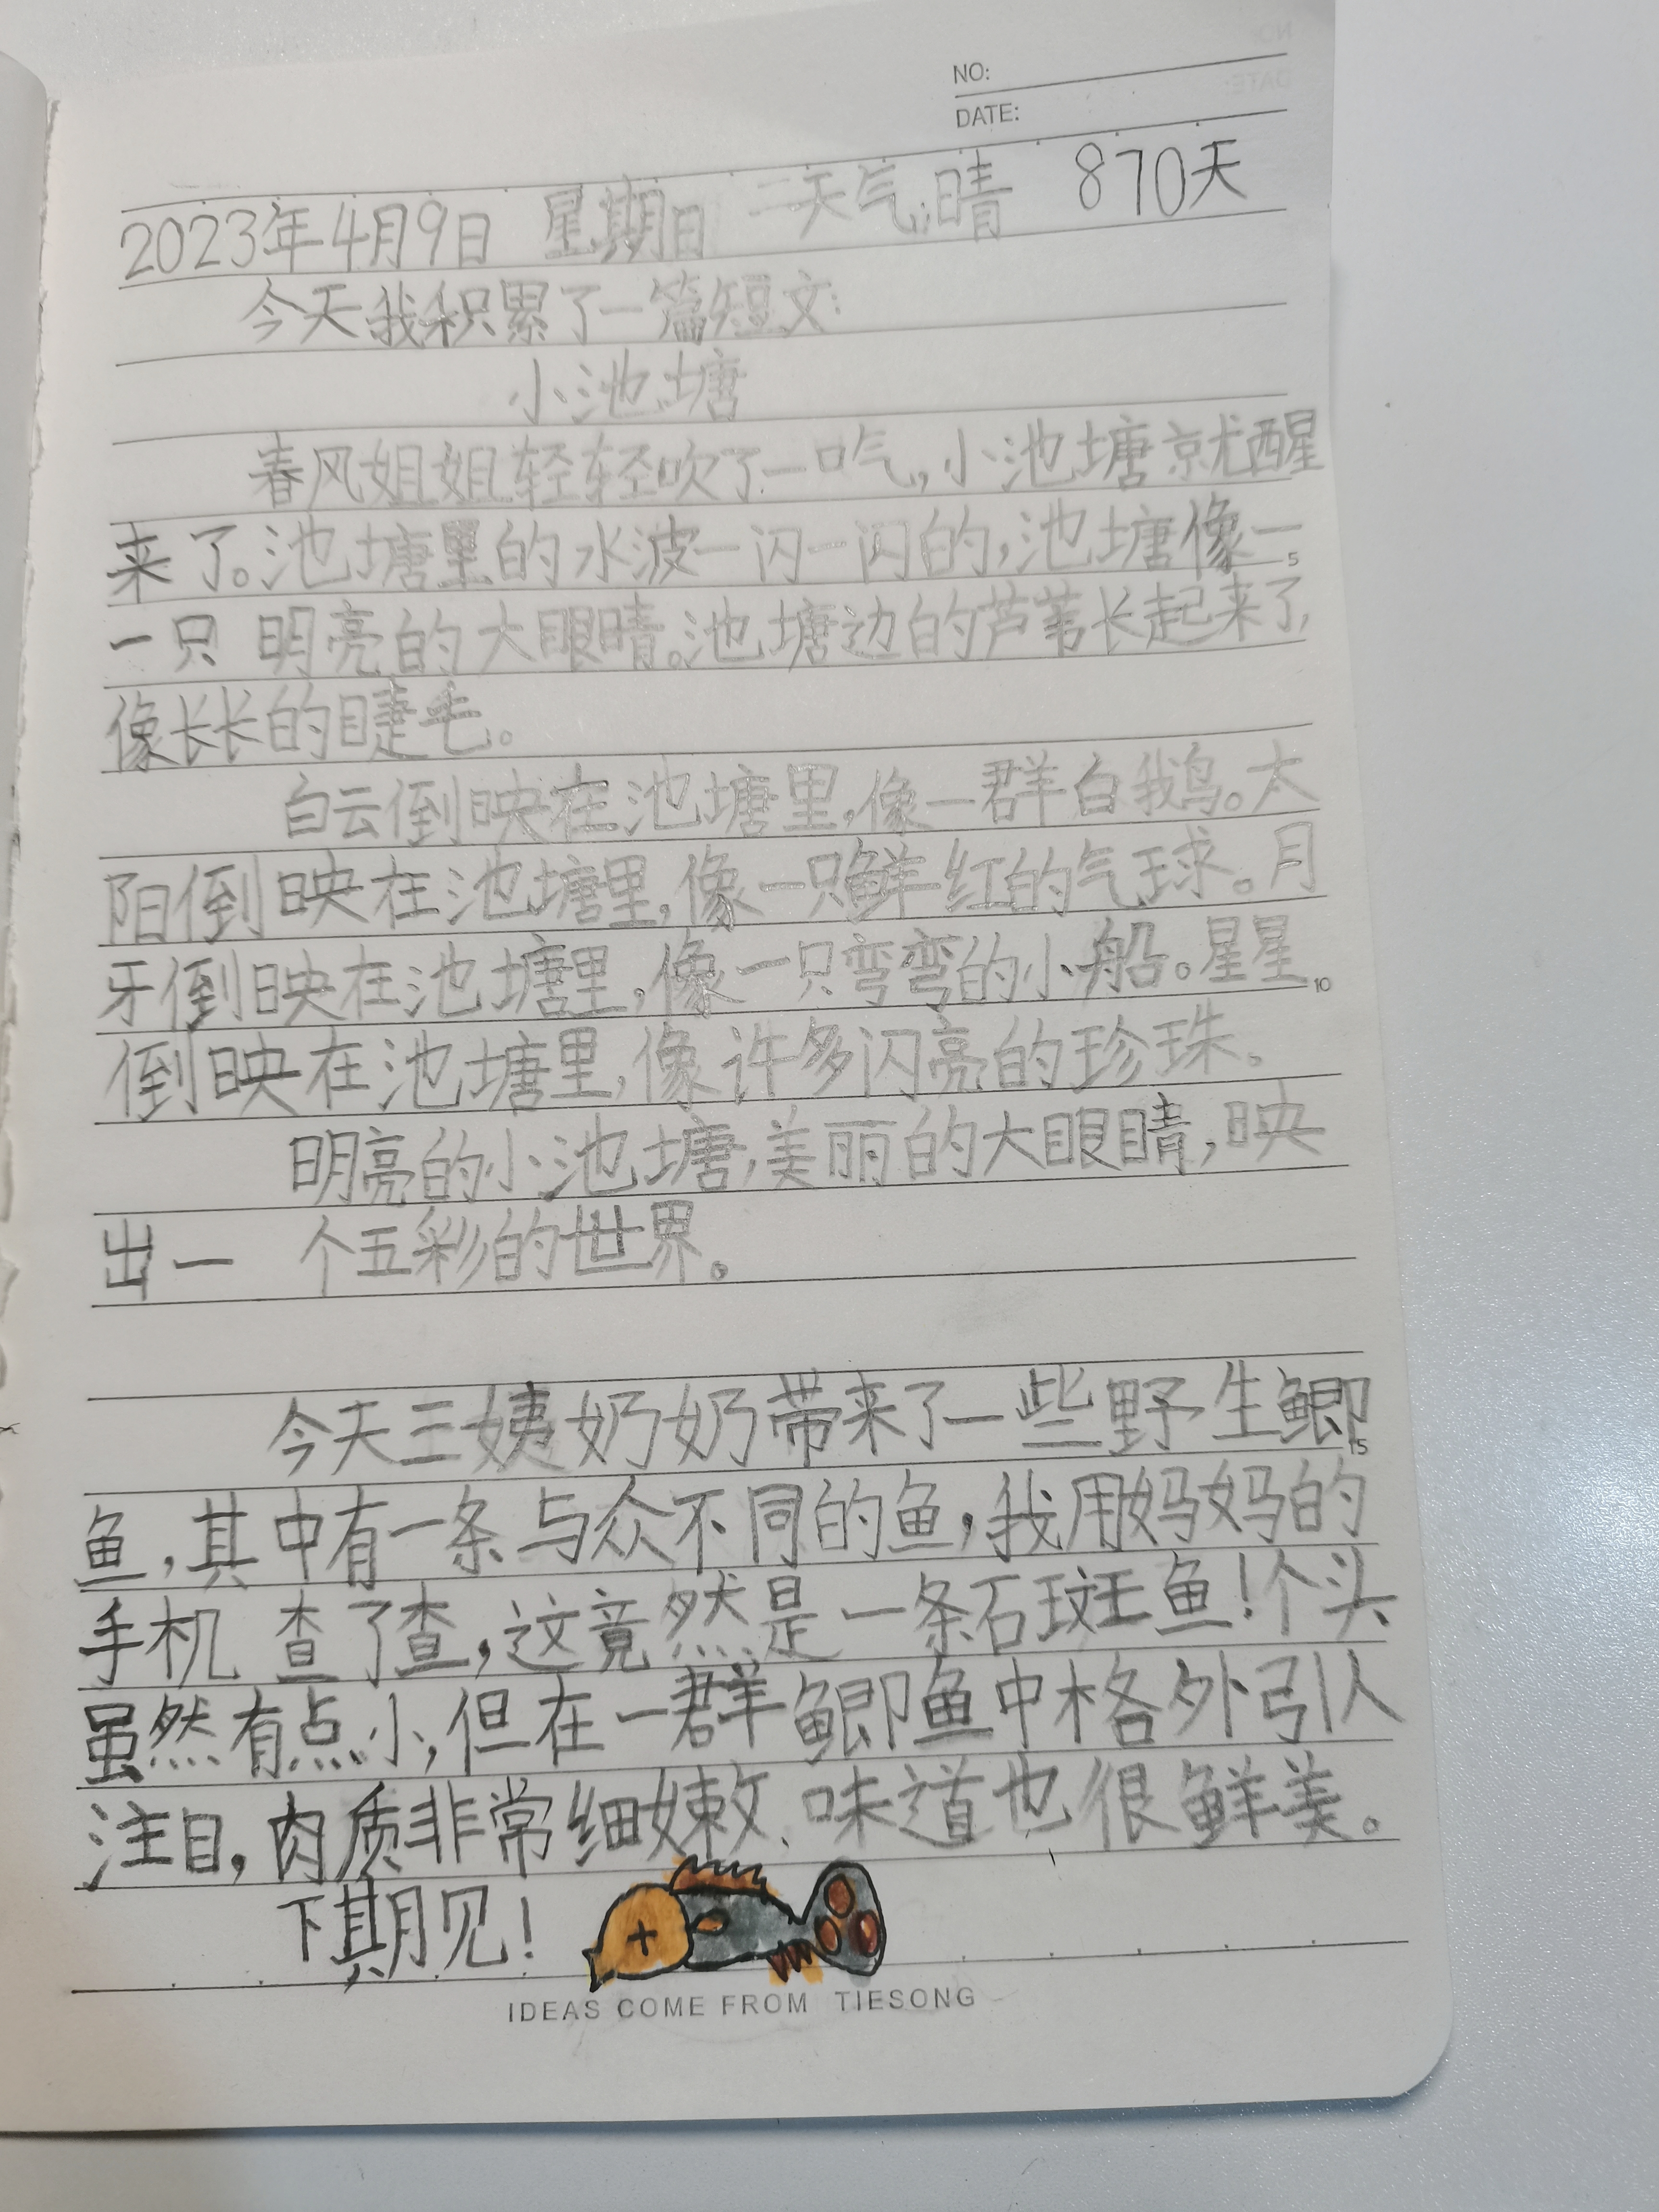 NO:
DATE:
2023年4月9日 星期日 天气:晴 870天
今天我积累了一篇短文:
小池塘
春风姐姐轻轻吹了一口气,小池塘就醒
来了。池塘里的水波一闪一闪的,池塘像一
一只 明亮的大眼睛。池塘边的芦苇长起来了,
像长长的睫毛。
白云倒映在池塘里,像一群白鹅。太
阳倒映在池塘里,像一只鲜红的气球。月
牙倒映在池塘里,像一只弯弯的小船。星星
倒映在池塘里,像许多闪亮的珍珠。
明亮的小池塘,美丽的大眼睛,映
出一 个五彩的世界。
今天三姨奶奶带来了一些野生鲫
鱼,其中有一条与众不同的鱼,我用妈妈的
手机 查了查,这竟然是一条石斑鱼!个头
虽然有点小,但在一群鲫鱼中格外引人
注目,肉质非常细嫩、味道也很鲜美。
下期见!
IDEAS COME FROM TIESONG
5
10
15